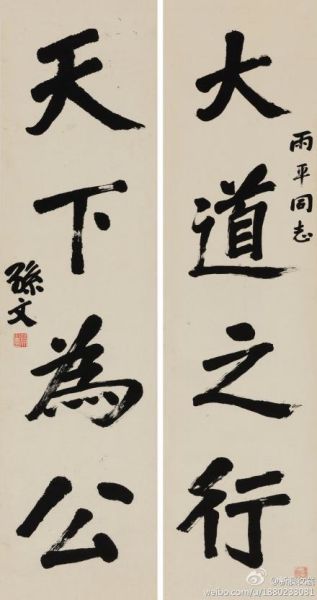 大道之行
雨平同志
天下為公
孫文
weibo.com/u/1880233031